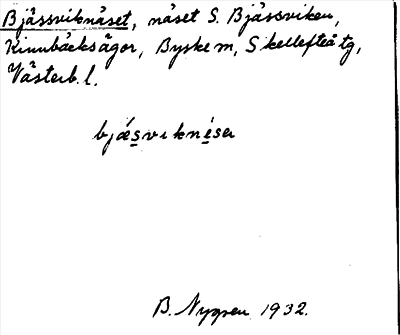 Bjässviknäset, näset S. Bjässviken,
Kinnbäcksågor, Byske m, Skellefteå tg,
Västerb. l.
bjǽsvıknésa
B. Nygren 1932.